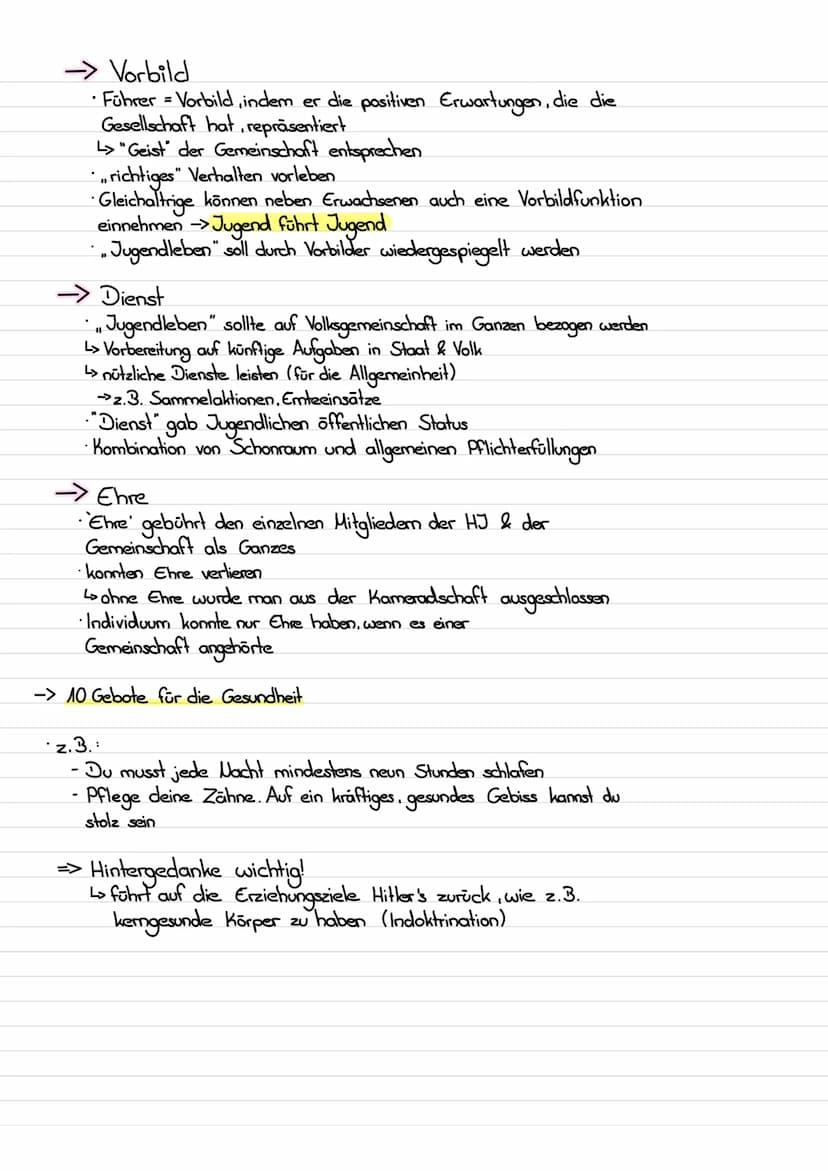 → Vorbild
· Führer = Vorbild, indem er die positiven Erwartungen, die die
Gesellschaft hat, repräsentiert
↳ "Geist" der Gemeinschaft entsprechen
· „richtiges" Verhalten vorleben
· Gleichaltrige können neben Erwachsenen auch eine Vorbildfunktion
einnehmen → Jugend führt Jugend
· „Jugendleben" soll durch Vorbilder wiedergespiegelt werden
→ Dienst
· „Jugendleben" sollte auf Volksgemeinschaft im Ganzen bezogen werden
↳ Vorbereitung auf künftige Aufgaben in Staat & Volk
↳ nützliche Dienste leisten (für die Allgemeinheit)
→ z.B. Sammelaktionen, Ernteeinsätze
· "Dienst" gab Jugendlichen öffentlichen Status
· Kombination von Schonraum und allgemeinen Pflichterfüllungen
→ Ehre
· 'Ehre' gebührt den einzelnen Mitgliedern der HJ & der
Gemeinschaft als Ganzes
· konnten Ehre verlieren
↳ ohne Ehre wurde man aus der Kameradschaft ausgeschlossen
· Individuum konnte nur Ehre haben, wenn es einer
Gemeinschaft angehörte
→ 10 Gebote für die Gesundheit
· z.B.:
- Du musst jede Nacht mindestens neun Stunden schlafen
- Pflege deine Zähne. Auf ein kräftiges, gesundes Gebiss kannst du
stolz sein
=> Hintergedanke wichtig!
↳ führt auf die Erziehungsziele Hitler's zurück, wie z.B.
kerngesunde Körper zu haben (Indoktrination)